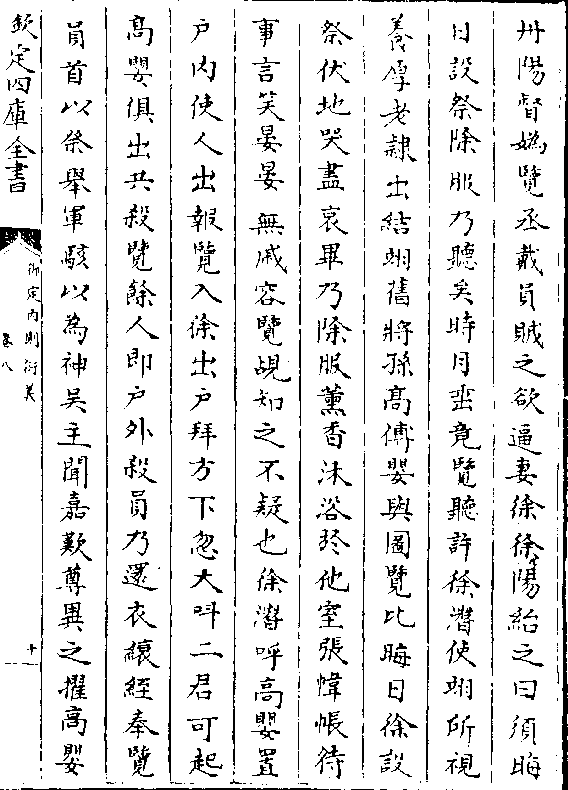 丹陽督媯覽丞戴員賊之欲逼妻徐徐陽紿之曰須晦
日設祭除服乃聽矣時月垂竟覽聽許徐潛使翊所視
養厚老隷出結翊舊將孫高傅嬰與圖覽比晦日徐設
祭伏地哭盡哀畢乃除服薰香沐浴於他室張幃帳待
事言笑晏晏無戚容覽覘知之不疑也徐潛呼高嬰置
户内使人出報覽入徐出户拜方下忽大呌二君可起
高嬰俱出共殺覽餘人即户外殺員乃還衣縗絰奉覽
員首以祭舉軍駭以為神吳主聞嘉歎尊異之擢高嬰
欽定四庫全書
御定内則衍義
卷八
十